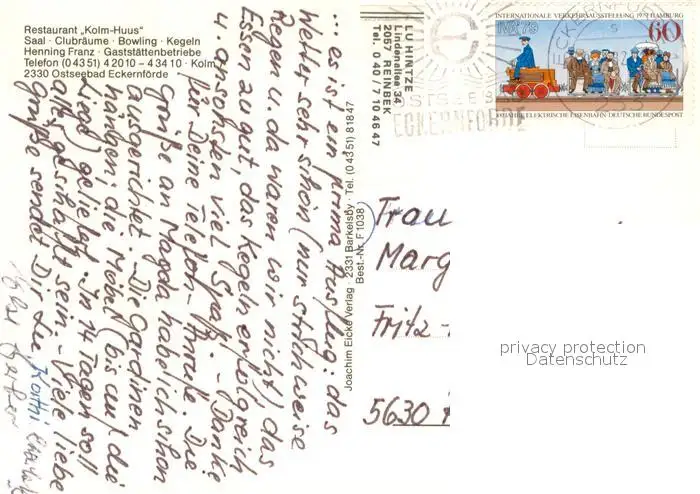 Restaurant „Kolm-Huus"
Saal · Clubräume · Bowling · Kegeln
Henning Franz · Gaststättenbetriebe
Telefon (0 43 51) 4 20 10 – 4 34 10 · Kolm
2330 Ostseebad Eckernförde
... es ist ein prima Ausflug: das
Wetter sehr schön (nur strichweise
Regen u. da waren wir nicht) das
Essen zu gut, das Kegeln erfolgreich
u. ansonsten viel Spaß. – Danke
für Deine Telefon-Anrufe. Die
Grüße an Magda habe ich schon
ausgerichtet. – Die Gardinen
hängen, die Möbel (bis auf die
) geliefert. In 14 Tagen soll
alles geschafft sein. – Viele liebe
Grüße sendet Dir die Käthi
Joachim Eicke Verlag · 2331 Barkelsby · Tel. (0 43 51) 8 18 47
Best.-Nr. F 1038
LU HINTZE
Lindenallee 34
2057 REINBEK
Tel. 0 40 / 7 10 46 47
OSTSEEB
ECKERNFÖRDE
INTERNATIONALE VERKEHRSAUSSTELLUNG 1979 HAMBURG
IVA 79
60
100 JAHRE ELEKTRISCHE EISENBAHN DEUTSCHE BUNDESPOST
ECKERNFÖRDE
Frau
Marg
Fritz-
5630
privacy protection
Datenschutz